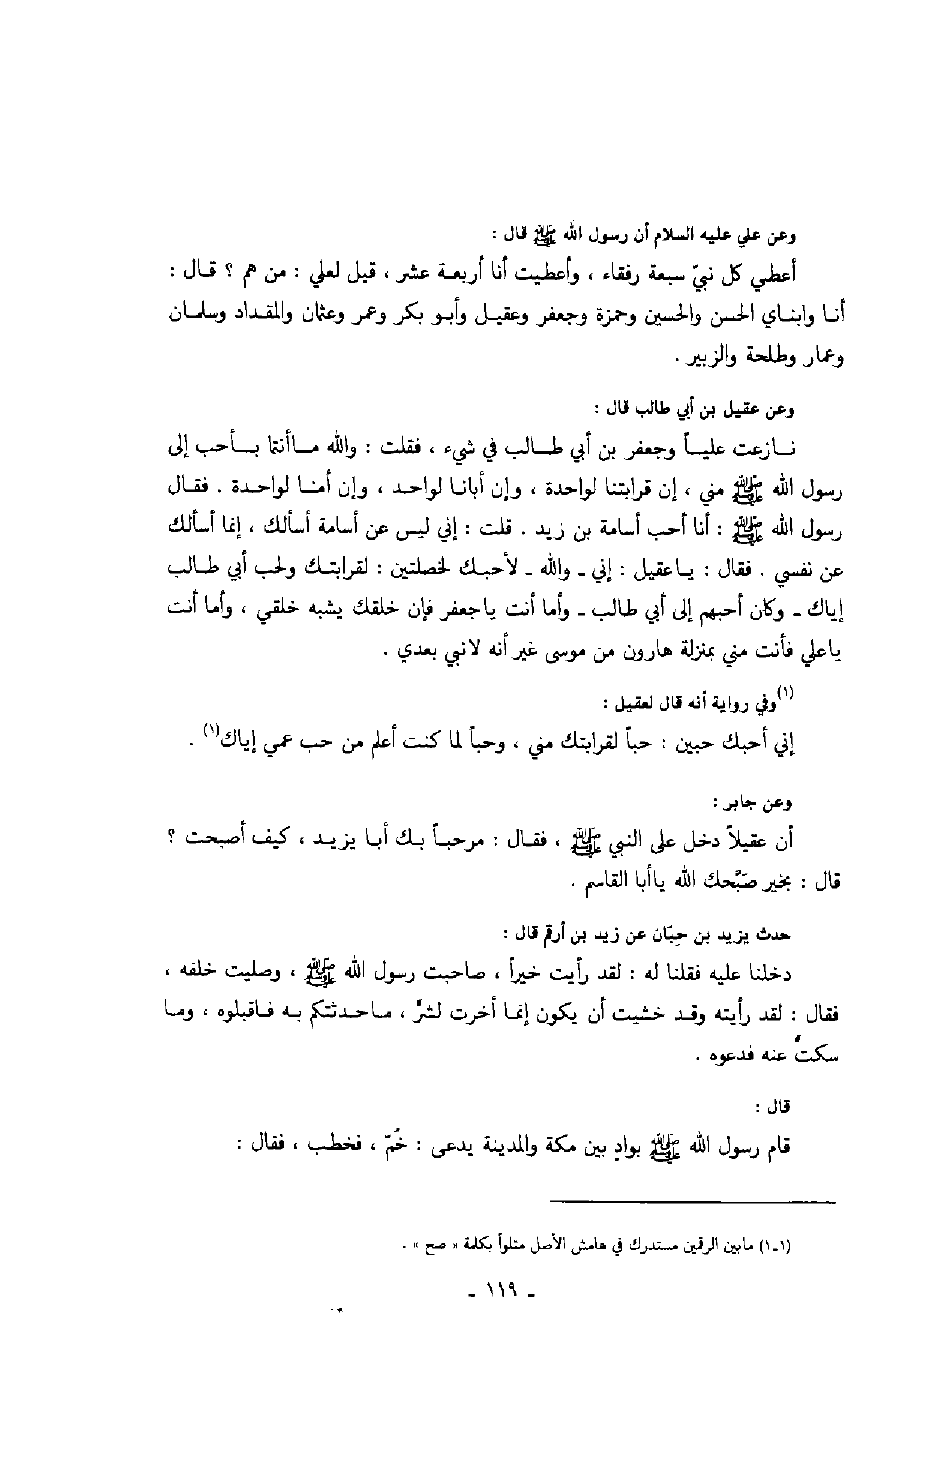 وعن علي عليه السلام أن رسول الله ﷺ قال :
أعطي كل نبيّ سبعة رفقاء ، وأعطيت أنا أربعة عشر ، قيل لعلي : من هم ؟ قال :
أنا وابناي الحسن والحسين وحمزة وجعفر وعقيل وأبو بكر وعمر وعثمان والمقداد وسلمان
وعمار وطلحة والزبير .
وعن عقيل بن أبي طالب قال :
نازعت علياً وجعفر بن أبي طالب في شيء ، فقلت : والله ماأنتما بأحب إلى
رسول الله ﷺ مني ، إن قرابتنا لواحدة ، وإن أبانا لواحد ، وإن أمنا لواحدة . فقال
رسول الله ﷺ : أنا أحب أسامة بن زيد . قلت : إني ليس عن أسامة أسألك ، إنما أسألك
عن نفسي . فقال : ياعقيل : إني ـ والله ـ لأحبك لخصلتين : لقرابتك ولحب أبي طالب
إياك ـ وكان أحبهم إلى أبي طالب ـ وأما أنت ياجعفر فإن خلقك يشبه خلقي ، وأما أنت
ياعلي فأنت مني بمنزلة هارون من موسى غير أنه لانبي بعدي .
(١)وفي رواية أنه قال لعقيل :
إني أحبك حبين : حباً لقرابتك مني ، وحباً لما كنت أعلم من حب عمي إياك(١) .
وعن جابر :
أن عقيلاً دخل على النبي ﷺ ، فقال : مرحباً بك أبا يزيد ، كيف أصبحت ؟
قال : بخير صبّحك الله ياأبا القاسم .
حدث يزيد بن حيّان عن زيد بن أرقم قال :
دخلنا عليه فقلنا له : لقد رأيت خيراً ، صاحبت رسول الله ﷺ ، وصليت خلفه ،
فقال : لقد رأيته وقد خشيت أن يكون إنما أخرت لشرٍّ ، ماحدثتكم به فاقبلوه ، وما
سكتُّ عنه فدعوه .
قال :
قام رسول الله ﷺ بوادٍ بين مكة والمدينة يدعى : خُمّ ، فخطب ، فقال :
(١ـ١) مابين الرقمين مستدرك في هامش الأصل متلواً بكلمة « صح » .
ـ ١١٩ ـ